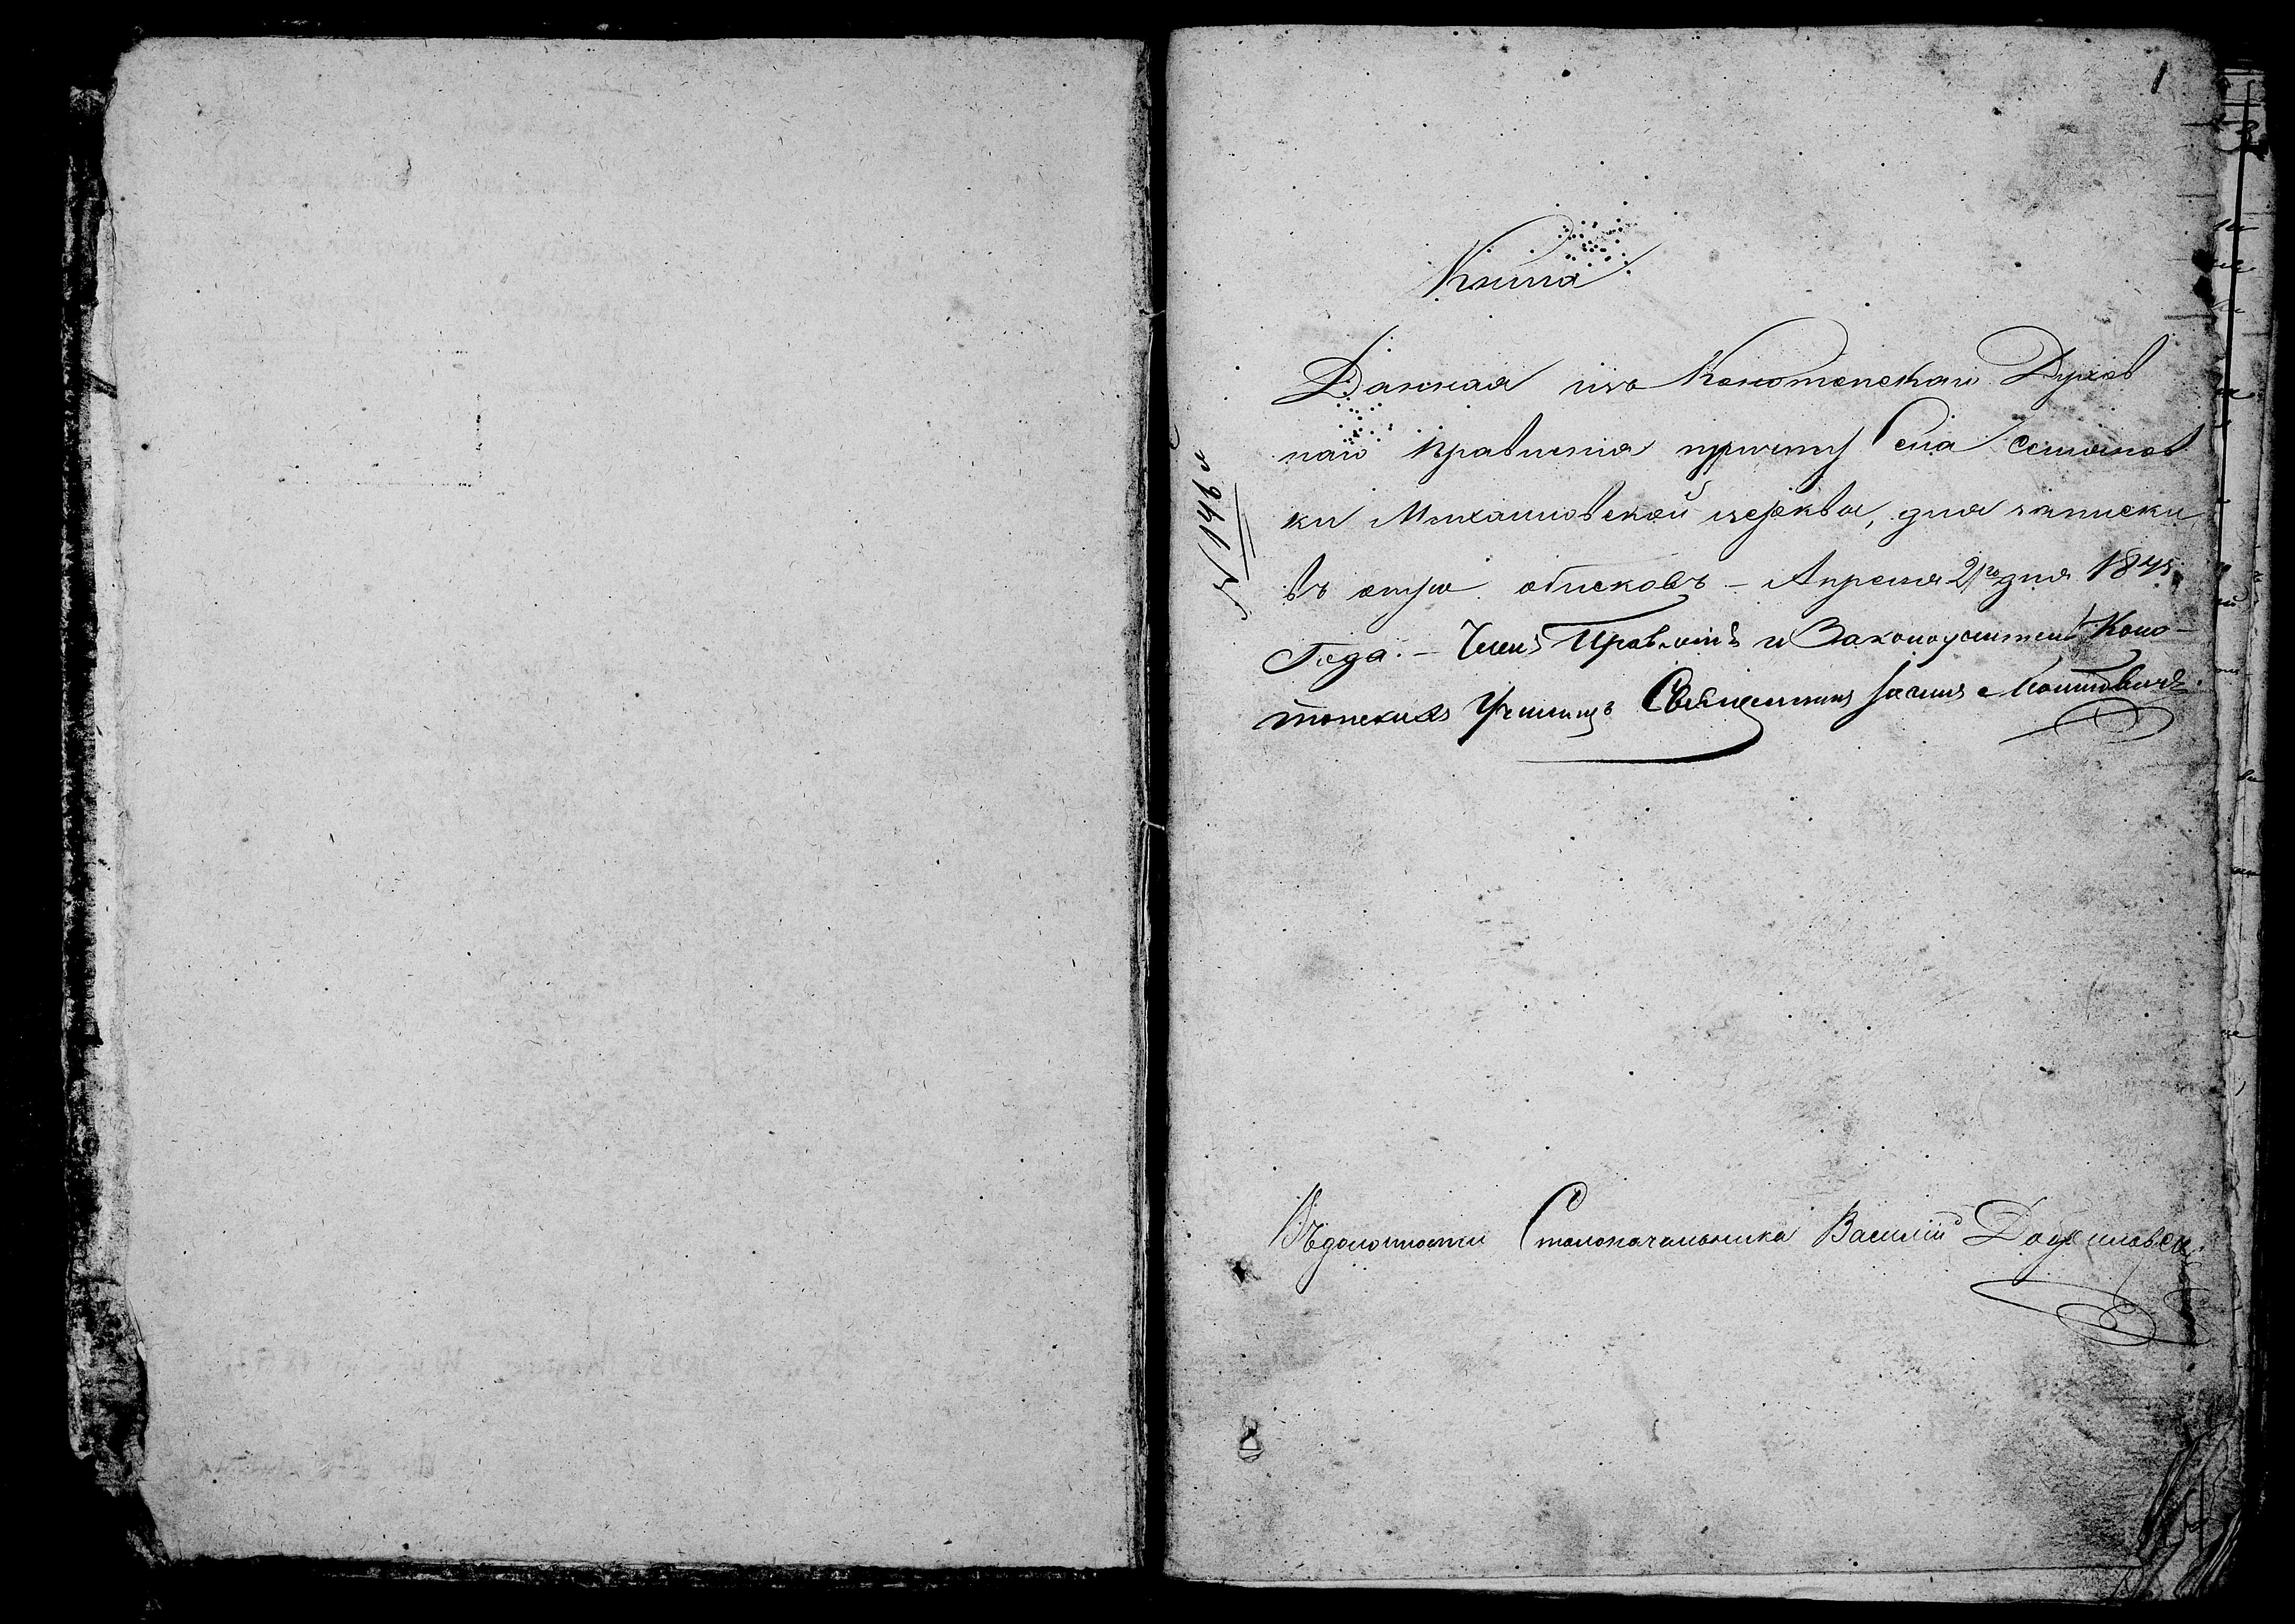 1
Книга
Данная изъ Конотопскаго Духов
наго Правленія причту Села Семянов
ки Михаиловской церкви, для записки
въ оную обысковъ – Апреля 2го дня 1845
Года. – Членъ Правленія и Законоучитель Коно-
топскихъ Училищъ Священникъ
Въ должности Столоначальника Василій